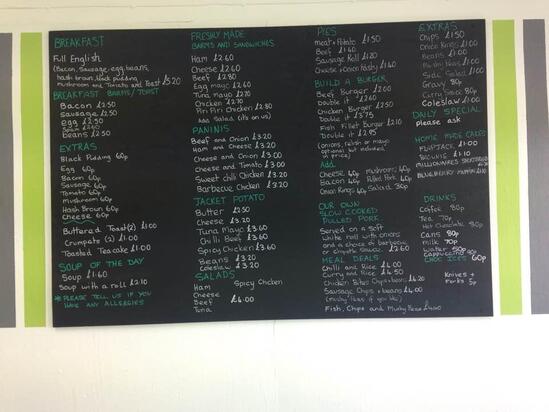 BREAKFAST
Full English
(Bacon, Sausage, egg, beans,
hash brown, black pudding
mushroom and Tomato and Toast £5.20
BREAKFAST BARMS/TOAST
Bacon £2.50
Sausage £2.50
egg £2.50
Spam £2.60
beans £2.50
EXTRAS
Black Pudding 60p
Egg 60p
Bacon 60p
Sausage 60p
Tomato 60p
Mushroom 60p
Hash Brown 60p
Cheese 60p
Buttered Toast(2) £1.00
Crumpets (2) £1.00
Toasted Teacake £1.00
SOUP OF THE DAY
Soup £1.60
Soup with a roll £2.10
* PLEASE TELL US IF YOU
HAVE ANY ALLERGIES
FRESHLY MADE
BARMS AND SANDWICHES
Ham £2.60
Cheese £2.60
Beef £2.80
Egg mayo £2.60
Tuna mayo £2.70
Chicken £2.70
Piri Piri Chicken £2.80
Add Salad (its on us)
PANINIS
Beef and Onion £3.20
Ham and Cheese £3.20
Cheese and Onion £3.00
Cheese and Tomato £3.00
Sweet chilli Chicken £3.20
Barbecue Chicken £3.20
JACKET POTATO
Butter £2.50
Cheese £3.20
Tuna Mayo £3.60
Chilli Beef £3.60
Spicy Chicken £3.60
Beans £3.20
Coleslaw £3.20
SALADS
Ham Spicy Chicken
Cheese
Beef £4.00
Tuna
PIES
meat & Potato £1.50
Beef £1.60
Sausage Roll £1.20
Cheese & Onion Pasty £1.60
BUILD A BURGER
Beef Burger £2.00
Double it £2.60
Chicken Burger £2.50
Double it £3.75
Fish Fillet Burger £2.10
Double it £2.95
(onions, relish or mayo
optional but included
in price)
Add
Cheese 40p mushrooms 40p
Bacon 60p Pulled Pork
Onion Rings Salad 30p
OUR OWN
SLOW COOKED
PULLED PORK
Served on a soft
white roll with onions
and a choice of barbecue
or chipotle sauce
MEAL DEALS
Chilli and Rice £4.00
Curry and Rice £4.50
Chicken Bites Chips + beans
Sausage Chips + beans £4.00
(mushy Peas if you like)
Fish, Chips and Mushy Peas £4.00
EXTRAS
Chips £1.50
Onion Rings £1.00
Beans
Mushy Peas £1.00
Side Salad £1.00
Gravy 80p
Curry Sauce 80p
Coleslaw £1.00
DAILY SPECIAL
please ask
HOME MADE CAKES
FLAPJACK £1.00
BROWNIE £1.10
MILLIONAIRES SHORTBREAD
BLUEBERRY MUFFIN
DRINKS
Coffee 80p
Tea 70p
Hot Chocolate 80p
Cans 80p
milk 70p
Water 50p
Cappuccino
CHOC ICES 60p
Knives +
Forks 5p